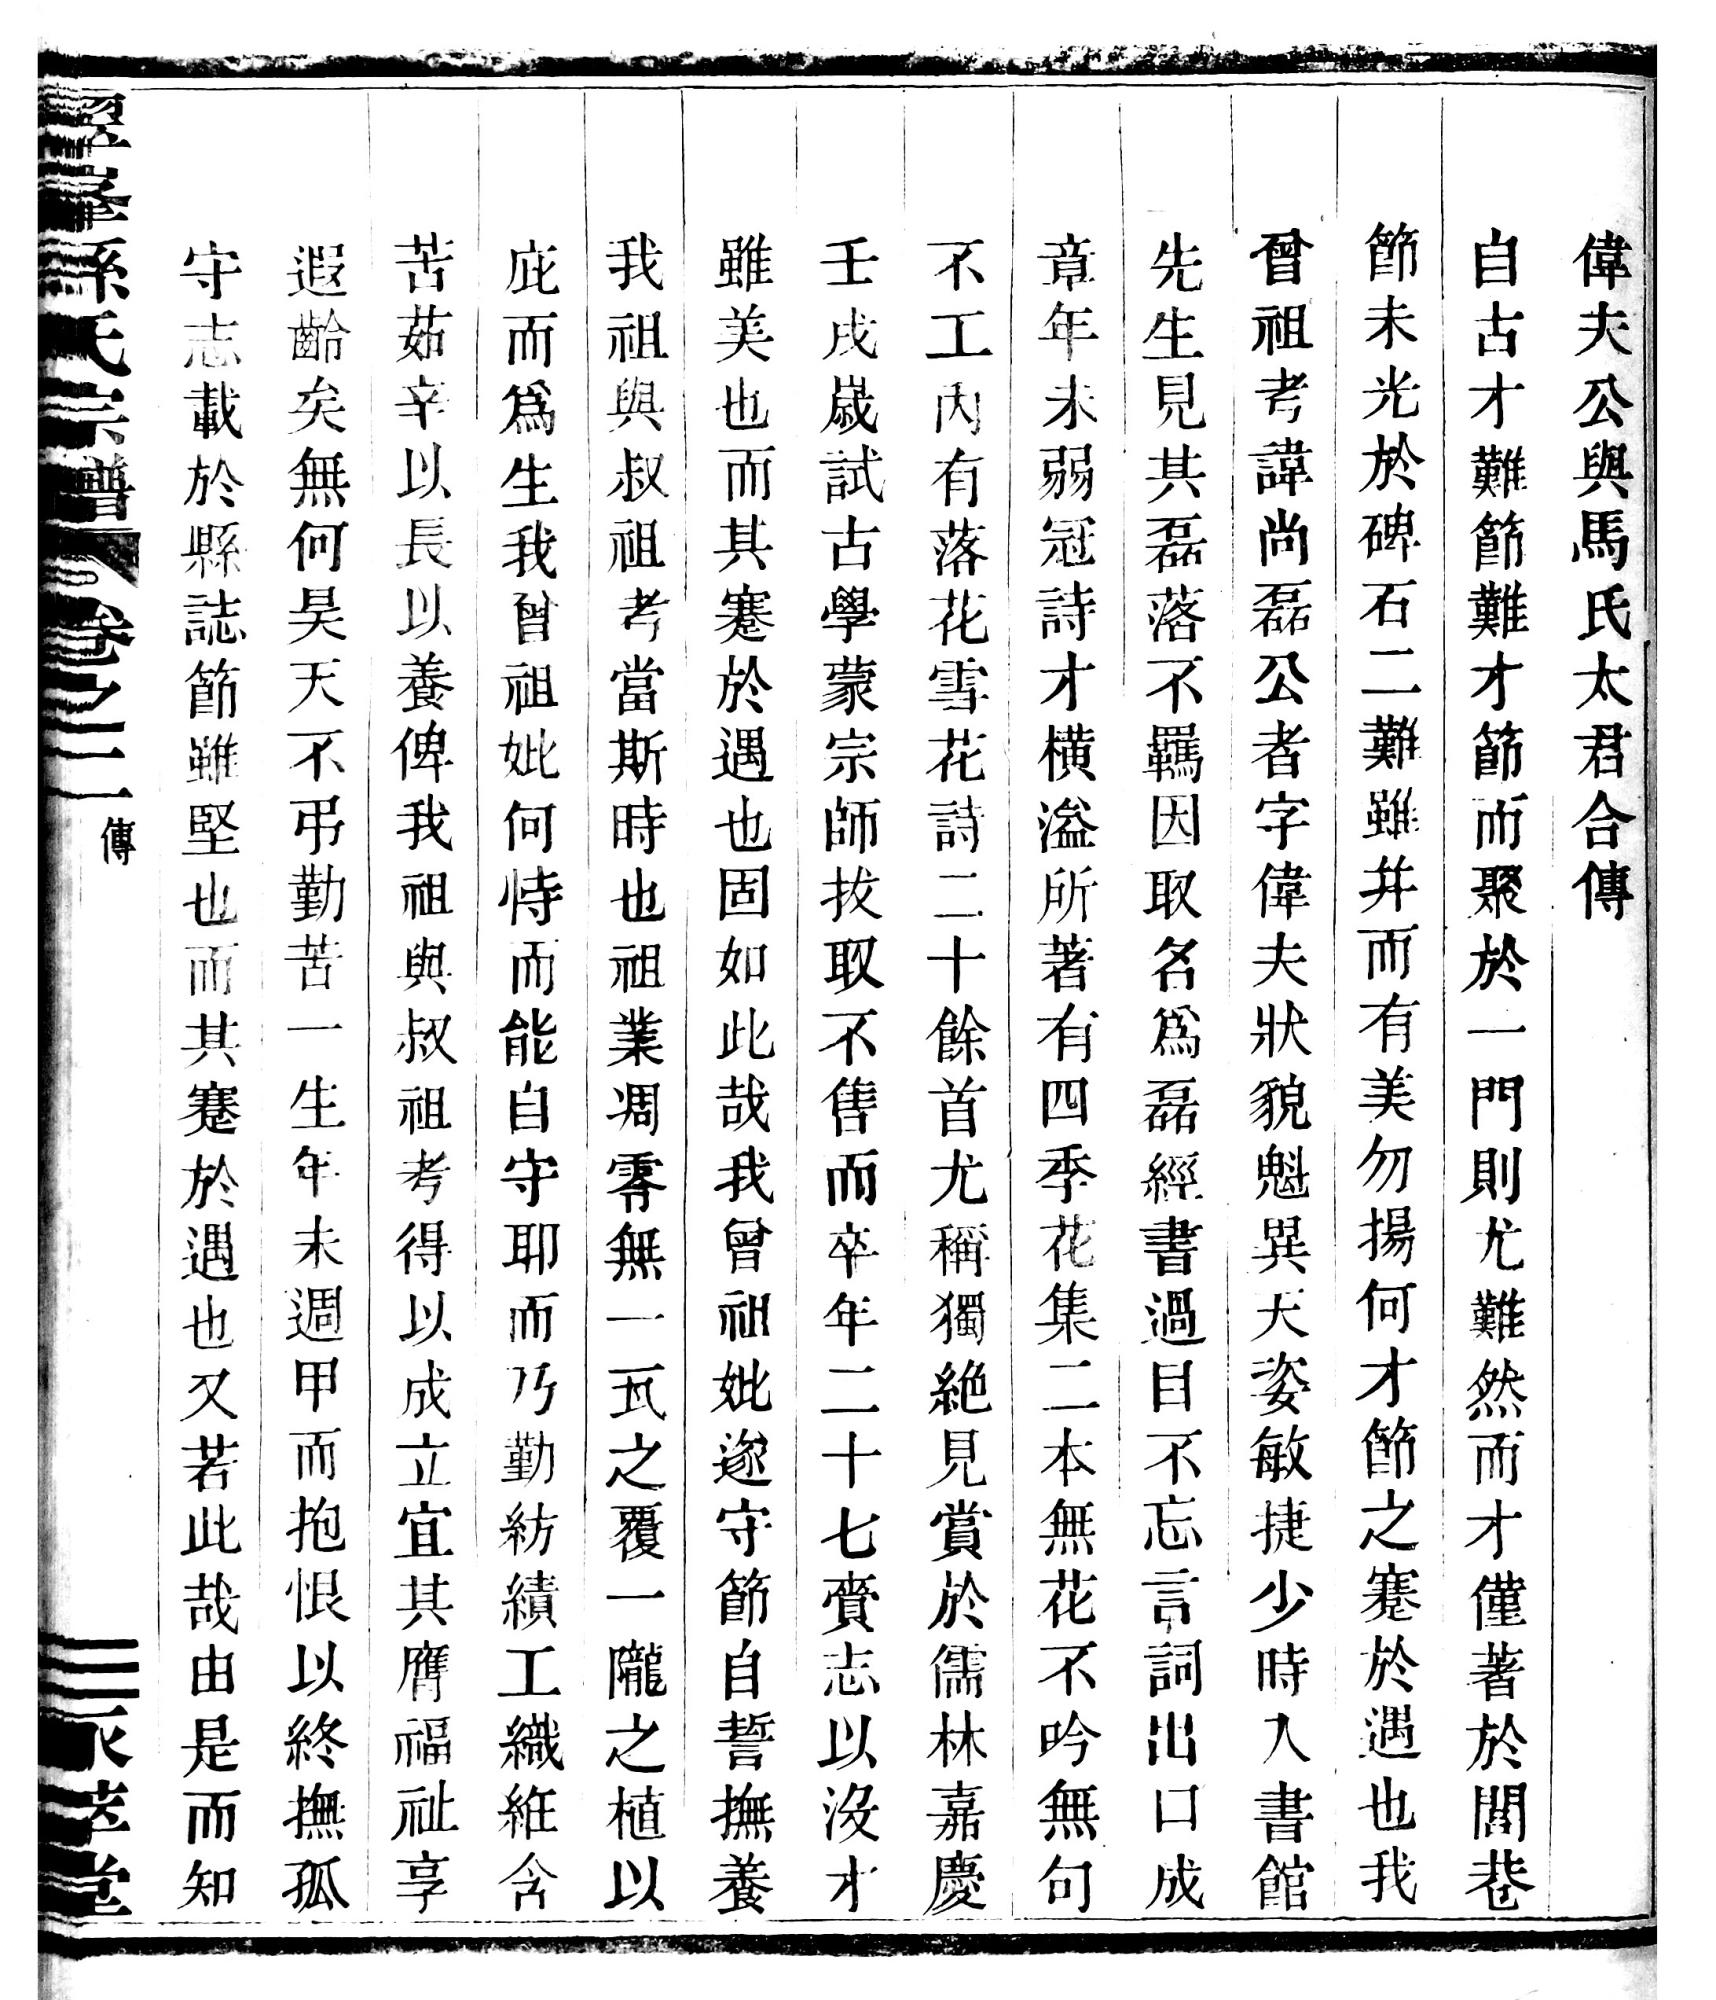 偉夫公與馬氏太君合傳
自古才難節難才節而聚於一門則尤難然而才僅著於閭巷
節未光於碑石二難雖幷而有美勿揚何才節之蹇於遇也我
曾祖考諱尚磊公者字偉夫狀貌魁異天姿敏捷少時入書館
先生見其磊落不羈因取名爲磊經書過目不忘言詞出口成
章年未弱冠詩才橫溢所著有四季花集二本無花不吟無句
不工內有落花雪花詩二十餘首尤稱獨絶見賞於儒林嘉慶
壬戌歲試古學蒙宗師拔取不售而卒年二十七賫志以沒才
雖美也而其蹇於遇也固如此哉我曾祖妣遂守節自誓撫養
我祖與叔祖考當斯時也祖業凋零無一瓦之覆一隴之植以
庇而爲生我曾祖妣何恃而能自守耶而乃勤紡績工織絍含
苦茹辛以長以養俾我祖與叔祖考得以成立宜其膺福祉享
遐齡矣無何昊天不弔勤苦一生年未週甲而抱恨以終撫孤
守志載於縣誌節雖堅也而其蹇於遇也又若此哉由是而知
孫氏宗譜 卷之二 傳 萃堂